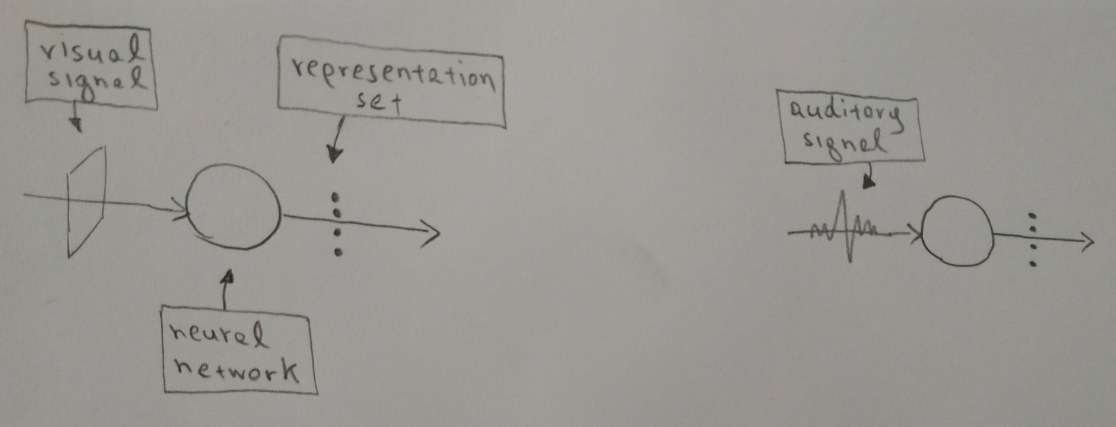 visual
signal
representation
set
neural
network
auditory
signal